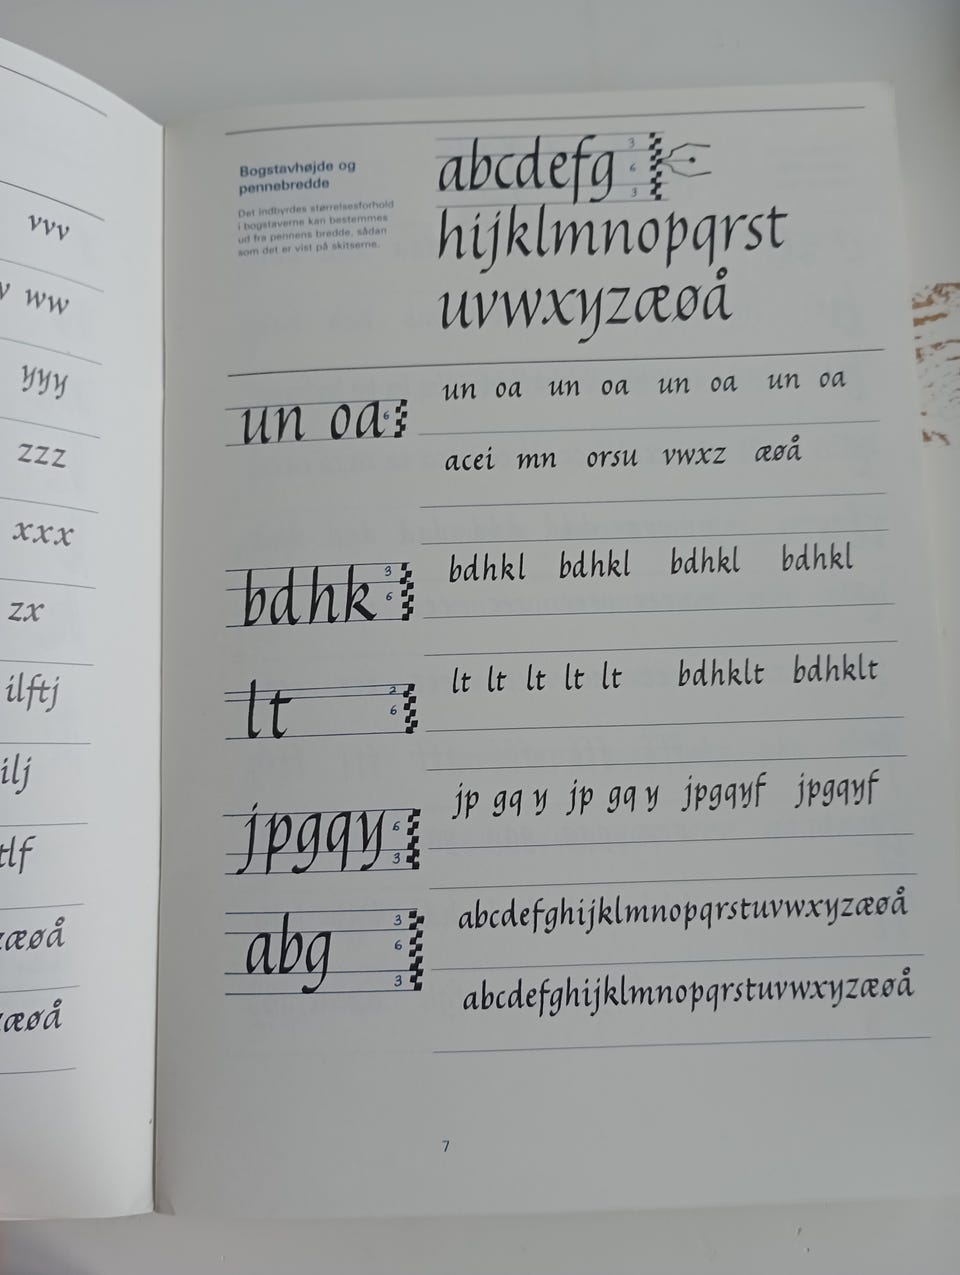 vvv
ww
yyy
zzz
xxx
zx
ilftj
ilj
tlf
æøå
æøå
Bogstavhøjde og
pennebredde
Det indbyrdes størrelsesforhold
i bogstaverne kan bestemmes
ud fra pennens bredde, sådan
som det er vist på skitserne.
abcdefg 3 6 3
hijklmnopqrst
uvwxyzæøå
un oa 6
un oa un oa un oa un oa
acei mn orsu vwxz æøå
bdhk 3 6
bdhkl bdhkl bdhkl bdhkl
lt 2 6
lt lt lt lt lt bdhklt bdhklt
jpgqy 6 3
jp gq y jp gq y jpgqyf jpgqyf
abg 3 6 3
abcdefghijklmnopqrstuvwxyzæøå
abcdefghijklmnopqrstuvwxyzæøå
7